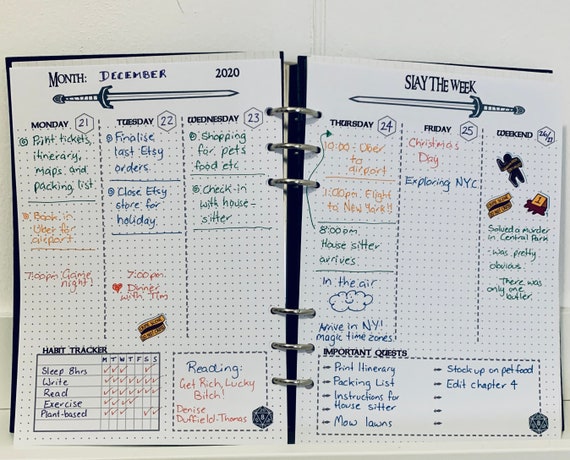 MONTH: DECEMBER 2020
MONDAY 21
Print tickets,
itinerary,
maps and
packing list
Book in
Uber for
airport.
7:00pm Game
night!
TUESDAY 22
Finalise
last Etsy
orders
Close Etsy
store for
holiday.
7:00pm
Dinner
with Tim
WEDNESDAY 23
Shopping
for pets
food etc
Check-in
with house-
sitter
HABIT TRACKER
M T W T F S S
Sleep 8hrs
Write
Read
Exercise
Plant-based
Reading:
Get Rich, Lucky
Bitch!
Denise
Duffield-Thomas
SLAY THE WEEK
THURSDAY 24
10:00 Uber
to
airport
1:00pm: Flight
to New York!!
8:00pm
House sitter
arrives.
In the air
Arrive in NY!
magic time zones!
FRIDAY 25
Christmas
Day
Exploring NYC
WEEKEND 26/27
Solved a murder
in Central Park
was pretty
obvious.
There was
only one
butler.
IMPORTANT QUESTS
Print Itinerary
Packing List
Instructions for
House sitter
Mow lawns
Stock up on pet food
Edit chapter 4